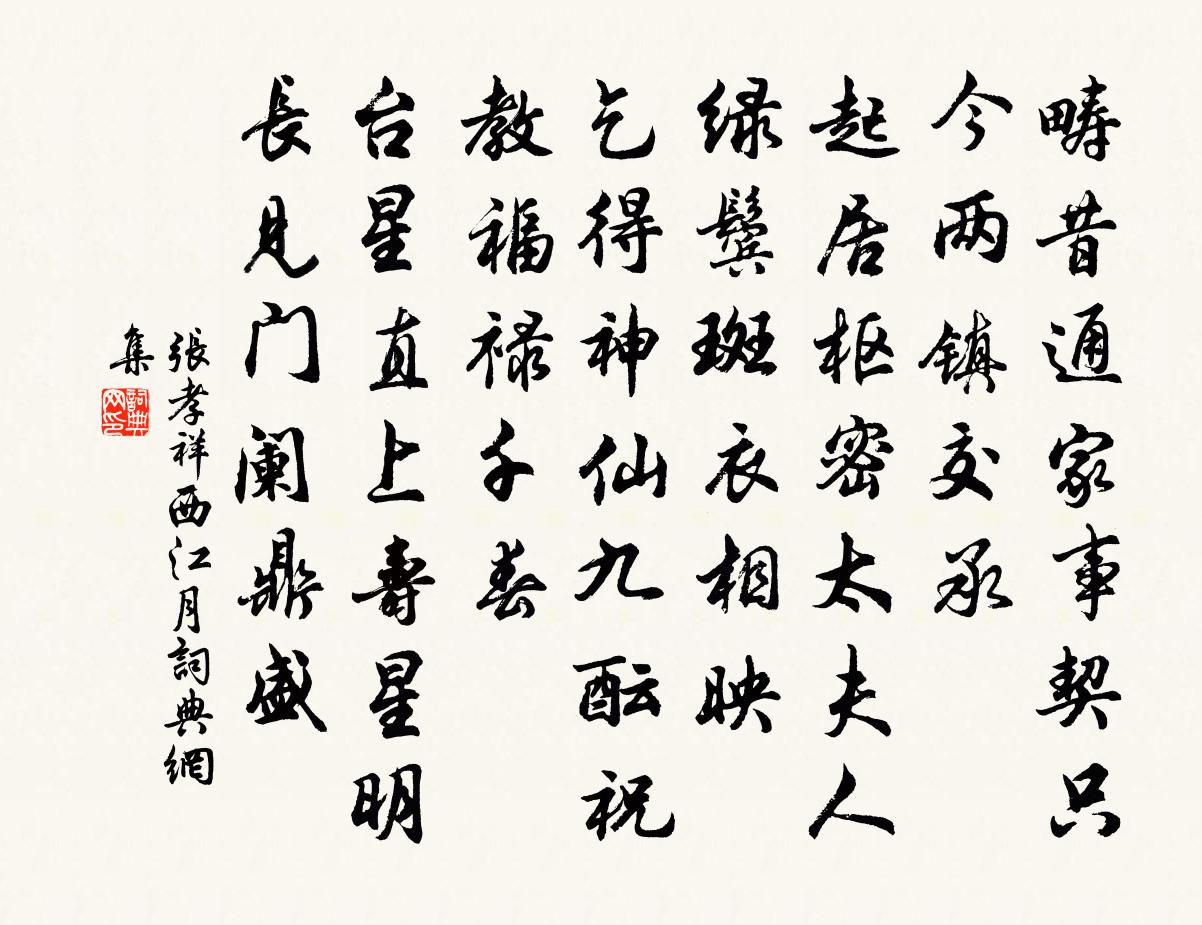 畴昔通家事契只
今两镇交承
起居枢密太夫人
绿鬓斑衣相映
乞得神仙九酝祝
教福禄千春
台星直上寿星明
長見门阑鼎盛
張孝祥西江月詞典網
集
詞典网印